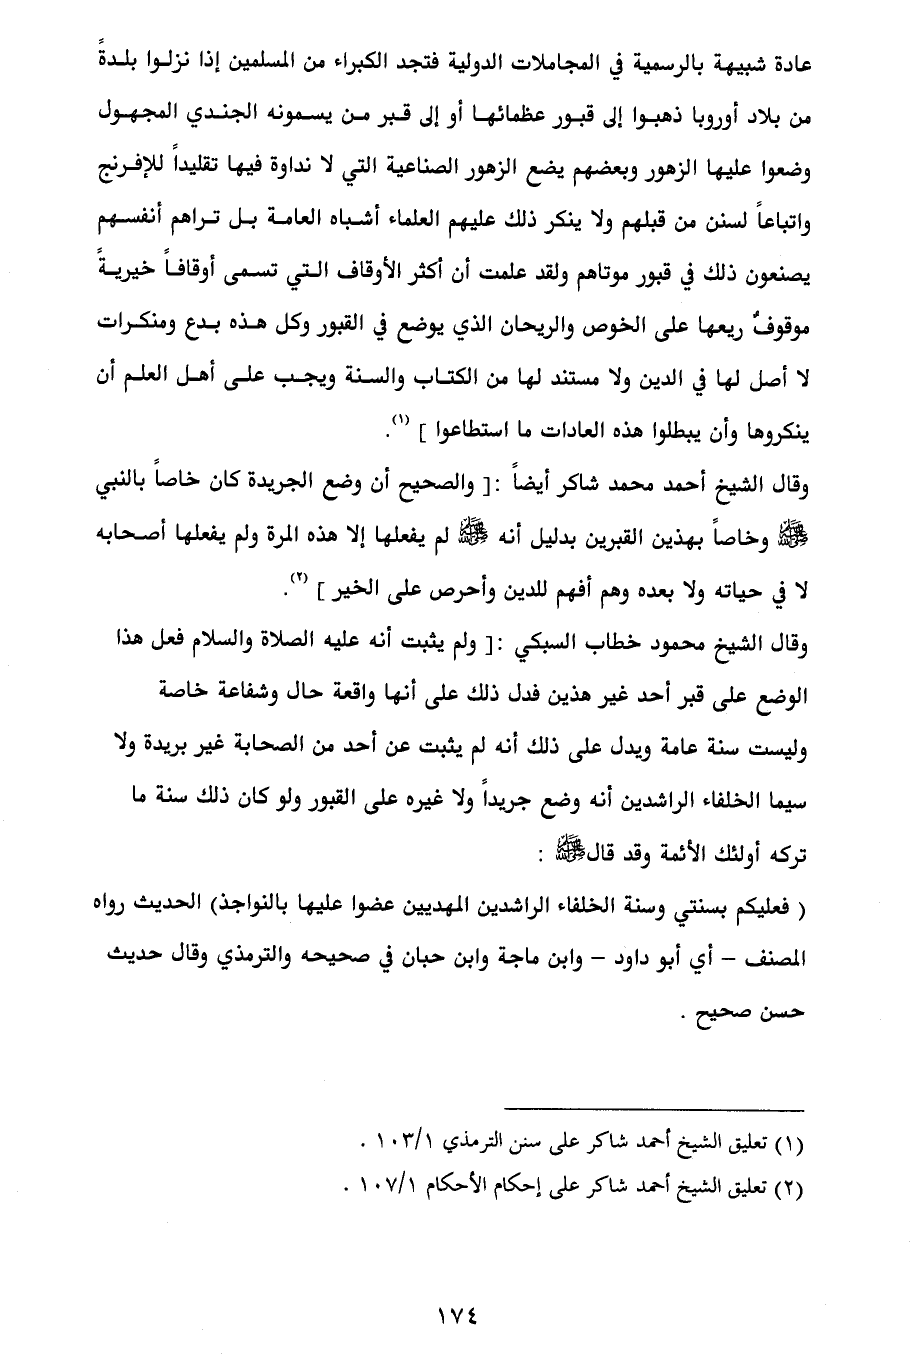 عادة شبيهة بالرسمية في المجاملات الدولية فتجد الكبراء من المسلمين إذا نزلوا بلدةً
من بلاد أوروبا ذهبوا إلى قبور عظمائها أو إلى قبر من يسمونه الجندي المجهول
وضعوا عليها الزهور وبعضهم يضع الزهور الصناعية التي لا نداوة فيها تقليداً للإفرنج
واتباعاً لسنن من قبلهم ولا ينكر ذلك عليهم العلماء أشباه العامة بل تراهم أنفسهم
يصنعون ذلك في قبور موتاهم ولقد علمت أن أكثر الأوقاف التي تسمى أوقافاً خيريةً
موقوفٌ ريعها على الخوص والريحان الذي يوضع في القبور وكل هذه بدع ومنكرات
لا أصل لها في الدين ولا مستند لها من الكتاب والسنة ويجب على أهل العلم أن
ينكروها وأن يبطلوا هذه العادات ما استطاعوا ] (١).
وقال الشيخ أحمد محمد شاكر أيضاً :[ والصحيح أن وضع الجريدة كان خاصاً بالنبي
ﷺ وخاصاً بهذين القبرين بدليل أنه ﷺ لم يفعلها إلا هذه المرة ولم يفعلها أصحابه
لا في حياته ولا بعده وهم أفهم للدين وأحرص على الخير ] (٢).
وقال الشيخ محمود خطاب السبكي :[ ولم يثبت أنه عليه الصلاة والسلام فعل هذا
الوضع على قبر أحد غير هذين فدل ذلك على أنها واقعة حال وشفاعة خاصة
وليست سنة عامة ويدل على ذلك أنه لم يثبت عن أحد من الصحابة غير بريدة ولا
سيما الخلفاء الراشدين أنه وضع جريداً ولا غيره على القبور ولو كان ذلك سنة ما
تركه أولئك الأئمة وقد قال ﷺ :
( فعليكم بسنتي وسنة الخلفاء الراشدين المهديين عضوا عليها بالنواجذ) الحديث رواه
المصنف – أي أبو داود – وابن ماجة وابن حبان في صحيحه والترمذي وقال حديث
حسن صحيح .
(١) تعليق الشيخ أحمد شاكر على سنن الترمذي ١٠٣/١ .
(٢) تعليق الشيخ أحمد شاكر على إحكام الأحكام ١٠٧/١ .
١٧٤